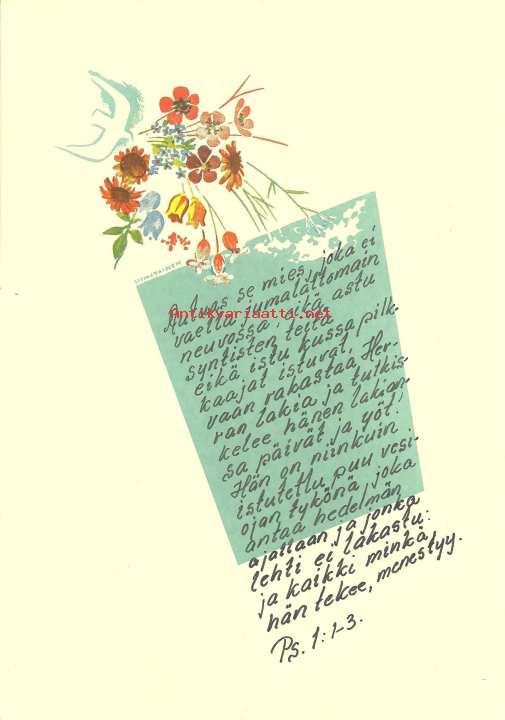 LIEMOLAINEN
Autuas se mies, joka ei
vaella jumalattomain
neuvossa, eikä astu
Antikvariaatti.net
syntisten teitä
eikä istu kussa pilk-
kaajat istuvat,
vaan rakastaa Her-
ran lakia ja tutkis-
kelee hänen lakian-
sa päivät ja yöt!
Hän on niinkuin
istutettu puu vesi-
ojan tykönä, joka
antaa hedelmän
ajallaan ja jonka
lehti ei lakastu:
ja kaikki minkä
hän tekee, menestyy.
Ps. 1:1-3.